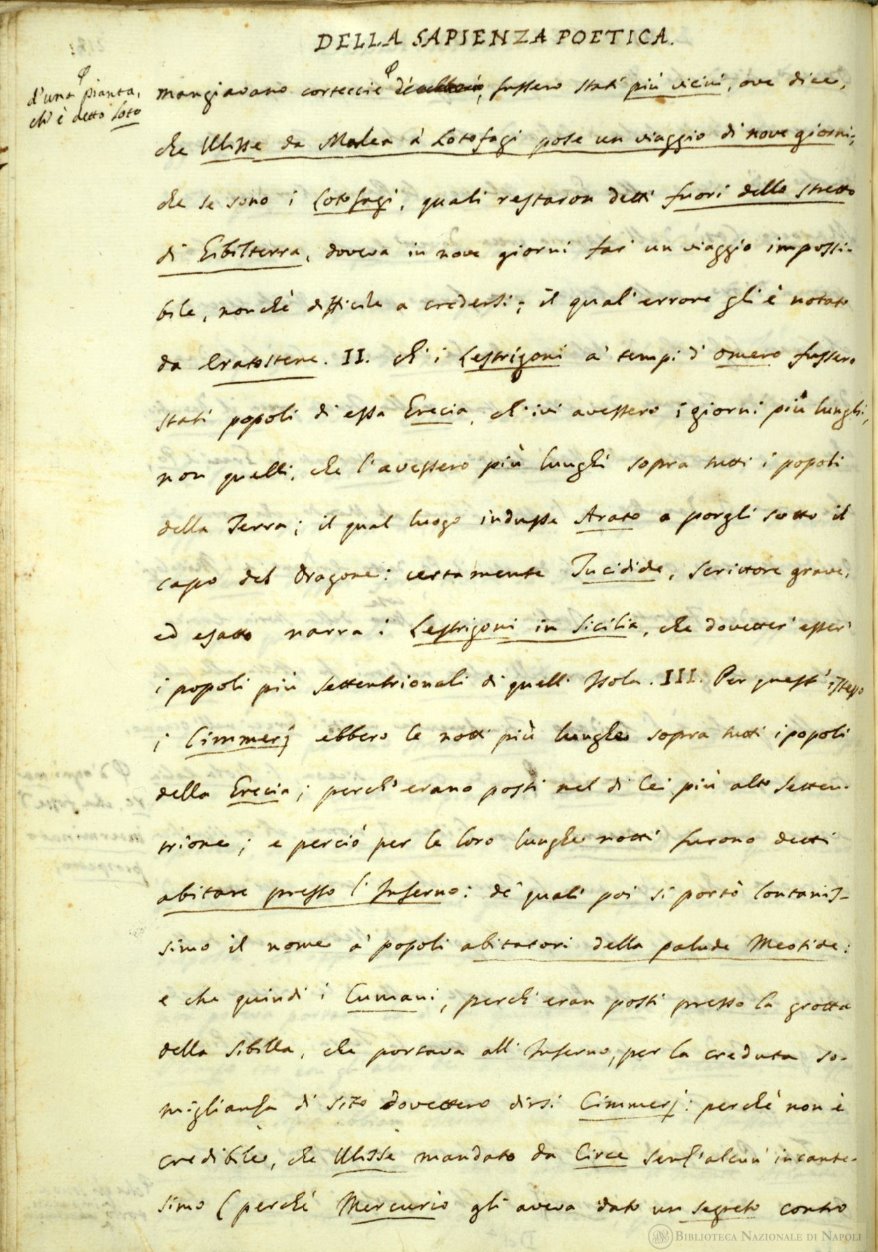 DELLA SAPIENZA POETICA.
d'una pianta,
ch'è detto Loto
mangiavano corteccie fussero stati più vicini, ove dice,
che Ulisse da Malea a' Lotofagi pose un viaggio di nove giorni;
che se sono i Lotofagi, quali restaron detti fuori dello stretto
di Gibilterra, doveva in nove giorni far un viaggio impossi-
bile, nonché difficile a credersi; il qual'errore gli è notato
da Eratostene. II. ch'i Lestrigoni a' tempi d'Omero fussero
stati popoli di essa Grecia, ch'ivi avessero i giorni più lunghi,
non quelli, che l'avessero più lunghi sopra tutti i popoli
della Terra; il qual luogo indusse Arato a porgli sotto il
capo del Dragone: certamente Tucidide, scrittore grave,
ed esatto narra i Lestrigoni in Sicilia, che dovetter'esser'
i popoli più settentrionali di quell'Isola. III. Per quest'istesso
i Cimmerj ebbero le notti più lunghe sopra tutti i popoli
della Grecia; perch'erano posti nel di lei più alto setten-
trione; e perciò per le loro lunghe notti furono detti
abitare presso l'Inferno: de' quali poi si portò lontanis-
simo il nome a' popoli abitatori della palude Meotide:
e che quindi i Cumani, perch'eran posti presso la grotta
della Sibilla, che portava all'Inferno, per la creduta so-
miglianza di sito dovettero dirsi Cimmerj: perchè non è
credibile, che Ulisse mandato da Circe senz'alcun'incante-
simo (perchè Mercurio gli aveva dato un segreto contro
BIBLIOTECA NAZIONALE DI NAPOLI